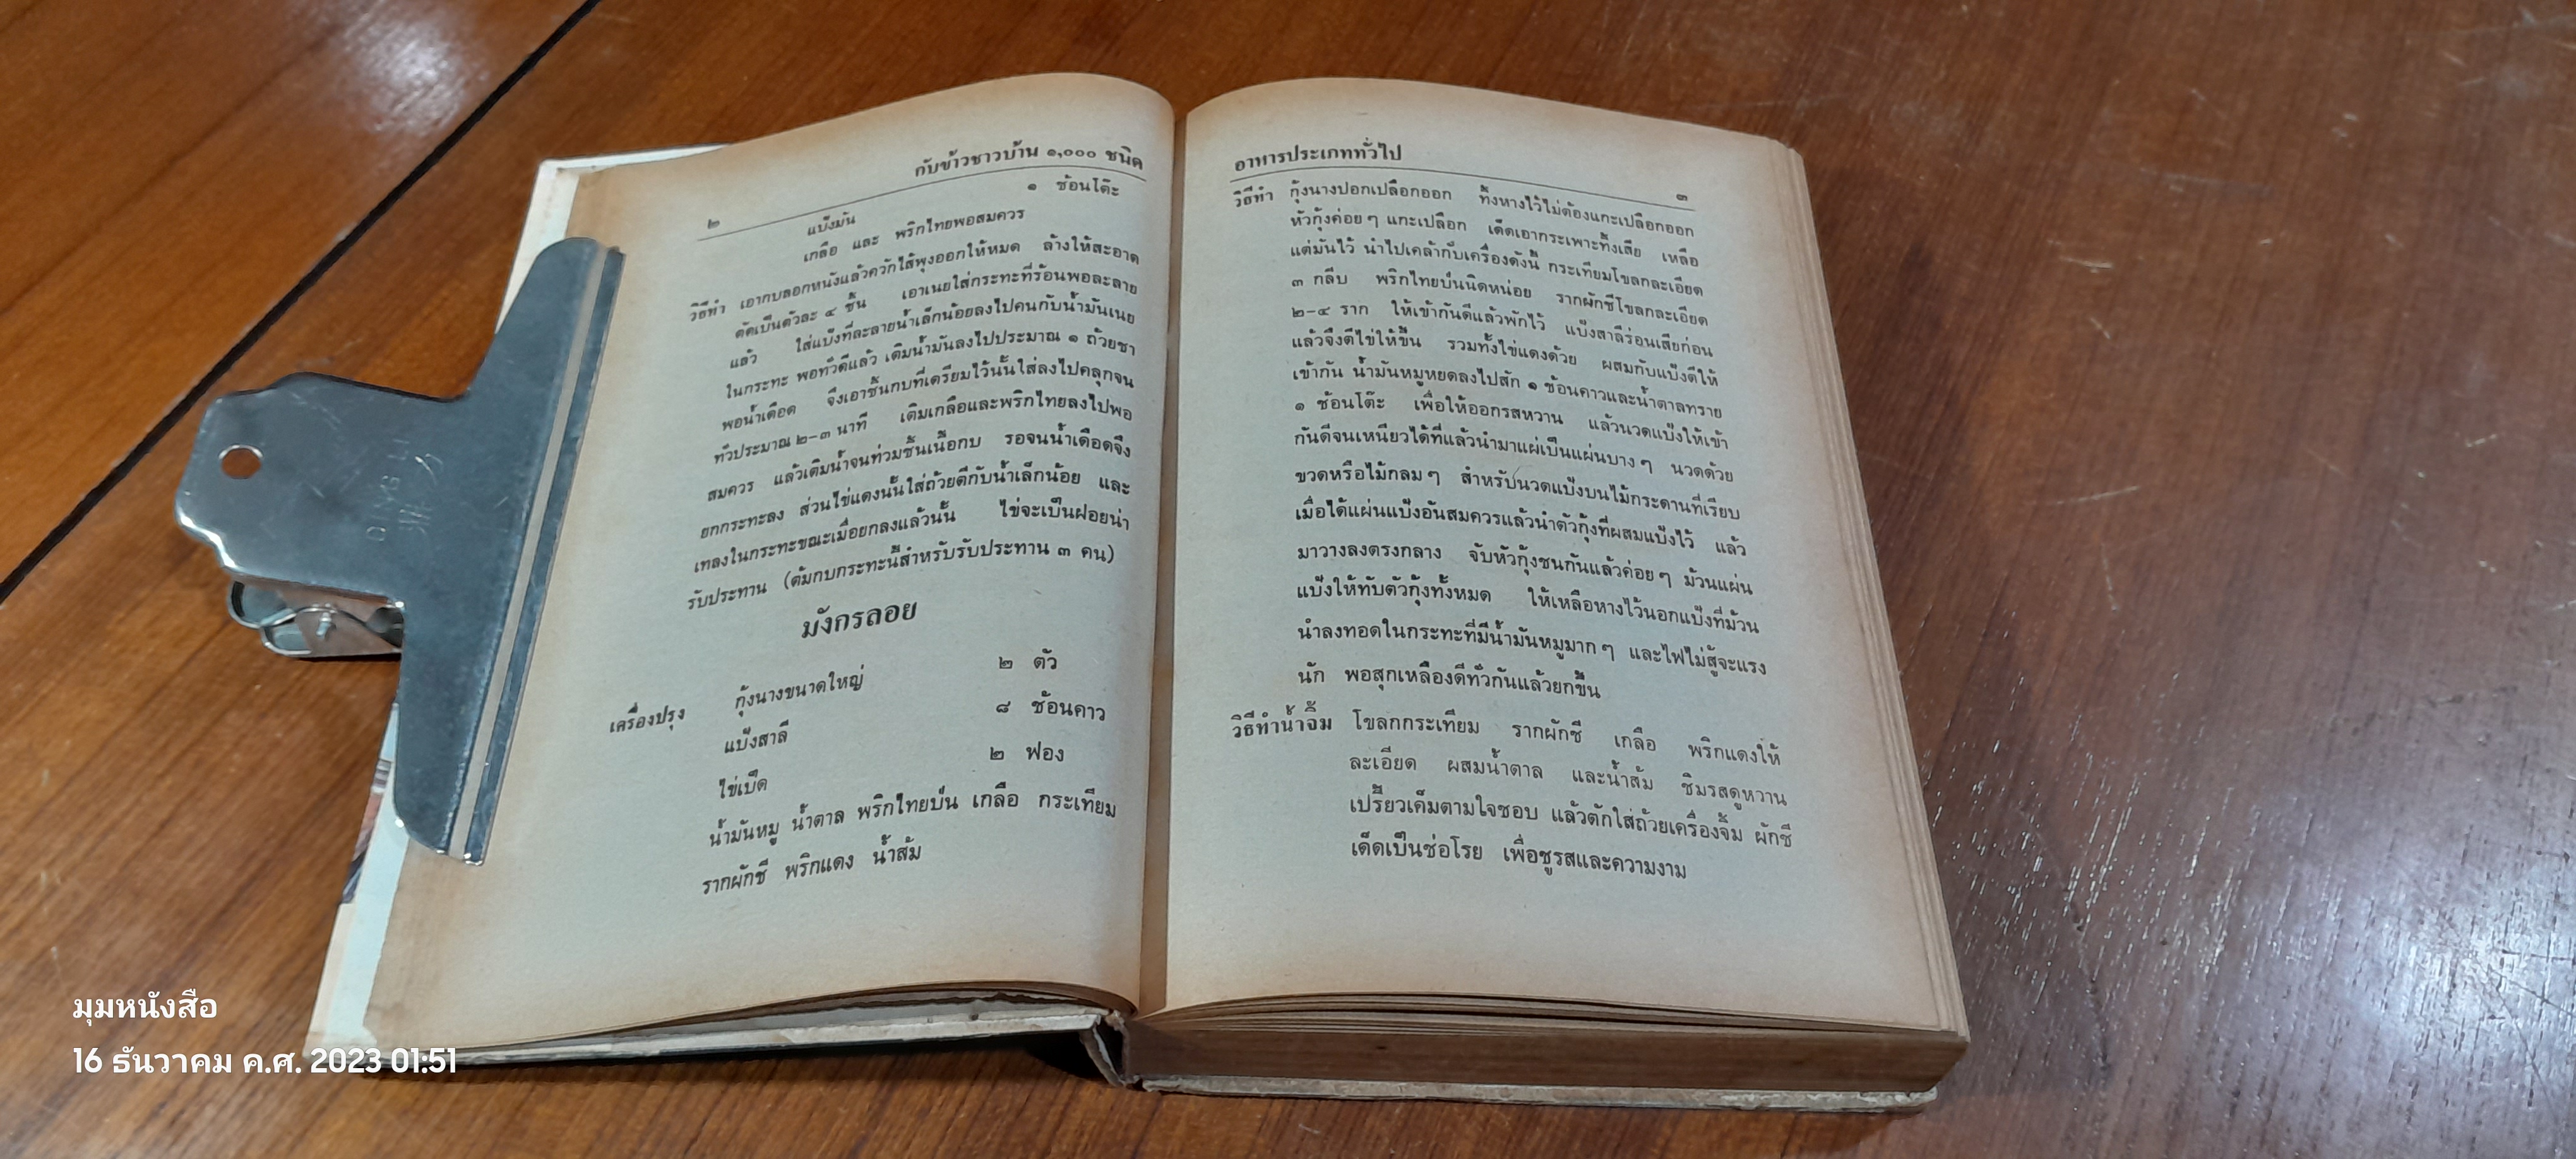 ๒
กับข้าวชาวบ้าน ๑,๐๐๐ ชนิด
แป้งมัน ๑ ช้อนโต๊ะ
เกลือ และ พริกไทยพอสมควร
วิธีทำ เอากบลอกหนังแล้วควักไส้พุงออกให้หมด ล้างให้สะอาด
ตัดเป็นตัวละ ๔ ชิ้น เอาเนยใส่กระทะที่ร้อนพอละลาย
แล้ว ใส่แป้งที่ละลายน้ำเล็กน้อยลงไปคนกับน้ำมันเนย
ในกระทะ พอทั่วดีแล้ว เติมน้ำมันลงไปประมาณ ๑ ถ้วยชา
พอน้ำเดือด จึงเอาชิ้นกบที่เตรียมไว้นั้นใส่ลงไปคลุกจน
ทั่วประมาณ ๒-๓ นาที เติมเกลือและพริกไทยลงไปพอ
สมควร แล้วเติมน้ำจนท่วมชิ้นเนื้อกบ รอจนน้ำเดือดจึง
ยกกระทะลง ส่วนไข่แดงนั้นใส่ถ้วยตีกับน้ำเล็กน้อย และ
เทลงในกระทะขณะเมื่อยกลงแล้วนั้น ไข่จะเป็นฝอยน่า
รับประทาน (ต้มกบกระทะนี้สำหรับรับประทาน ๓ คน)
มังกรลอย
เครื่องปรุง กุ้งนางขนาดใหญ่ ๒ ตัว
แป้งสาลี ๘ ช้อนคาว
ไข่เป็ด ๒ ฟอง
น้ำมันหมู น้ำตาล พริกไทยป่น เกลือ กระเทียม
รากผักชี พริกแดง น้ำส้ม
อาหารประเภททั่วไป
๓
วิธีทำ กุ้งนางปอกเปลือกออก ทิ้งหางไว้ไม่ต้องแกะเปลือกออก
หัวกุ้งค่อยๆ แกะเปลือก เด็ดเอากระเพาะทิ้งเสีย เหลือ
แต่มันไว้ นำไปเคล้ากับเครื่องดังนี้ กระเทียมโขลกละเอียด
๓ กลีบ พริกไทยป่นนิดหน่อย รากผักชีโขลกละเอียด
๒-๔ ราก ให้เข้ากันดีแล้วพักไว้ แป้งสาลีร่อนเสียก่อน
แล้วจึงตีไข่ให้ขึ้น รวมทั้งไข่แดงด้วย ผสมกับแป้งตีให้
เข้ากัน น้ำมันหมูหยดลงไปสัก ๑ ช้อนคาวและน้ำตาลทราย
๑ ช้อนโต๊ะ เพื่อให้ออกรสหวาน แล้วนวดแป้งให้เข้า
กันดีจนเหนียวได้ที่แล้วนำมาแผ่เป็นแผ่นบางๆ นวดด้วย
ขวดหรือไม้กลมๆ สำหรับนวดแป้งบนไม้กระดานที่เรียบ
เมื่อได้แผ่นแป้งอันสมควรแล้วนำตัวกุ้งที่ผสมแป้งไว้ แล้ว
มาวางลงตรงกลาง จับหัวกุ้งชนกันแล้วค่อยๆ ม้วนแผ่น
แป้งให้ทับตัวกุ้งทั้งหมด ให้เหลือหางไว้นอกแป้งที่ม้วน
นำลงทอดในกระทะที่มีน้ำมันหมูมากๆ และไฟไม่สู้จะแรง
นัก พอสุกเหลืองดีทั่วกันแล้วยกขึ้น
วิธีทำน้ำจิ้ม โขลกกระเทียม รากผักชี เกลือ พริกแดงให้
ละเอียด ผสมน้ำตาล และน้ำส้ม ชิมรสดูหวาน
เปรี้ยวเค็มตามใจชอบ แล้วตักใส่ถ้วยเครื่องจิ้ม ผักชี
เด็ดเป็นช่อโรย เพื่อชูรสและความงาม
มุมหนังสือ
16 ธันวาคม ค.ศ. 2023 01:51